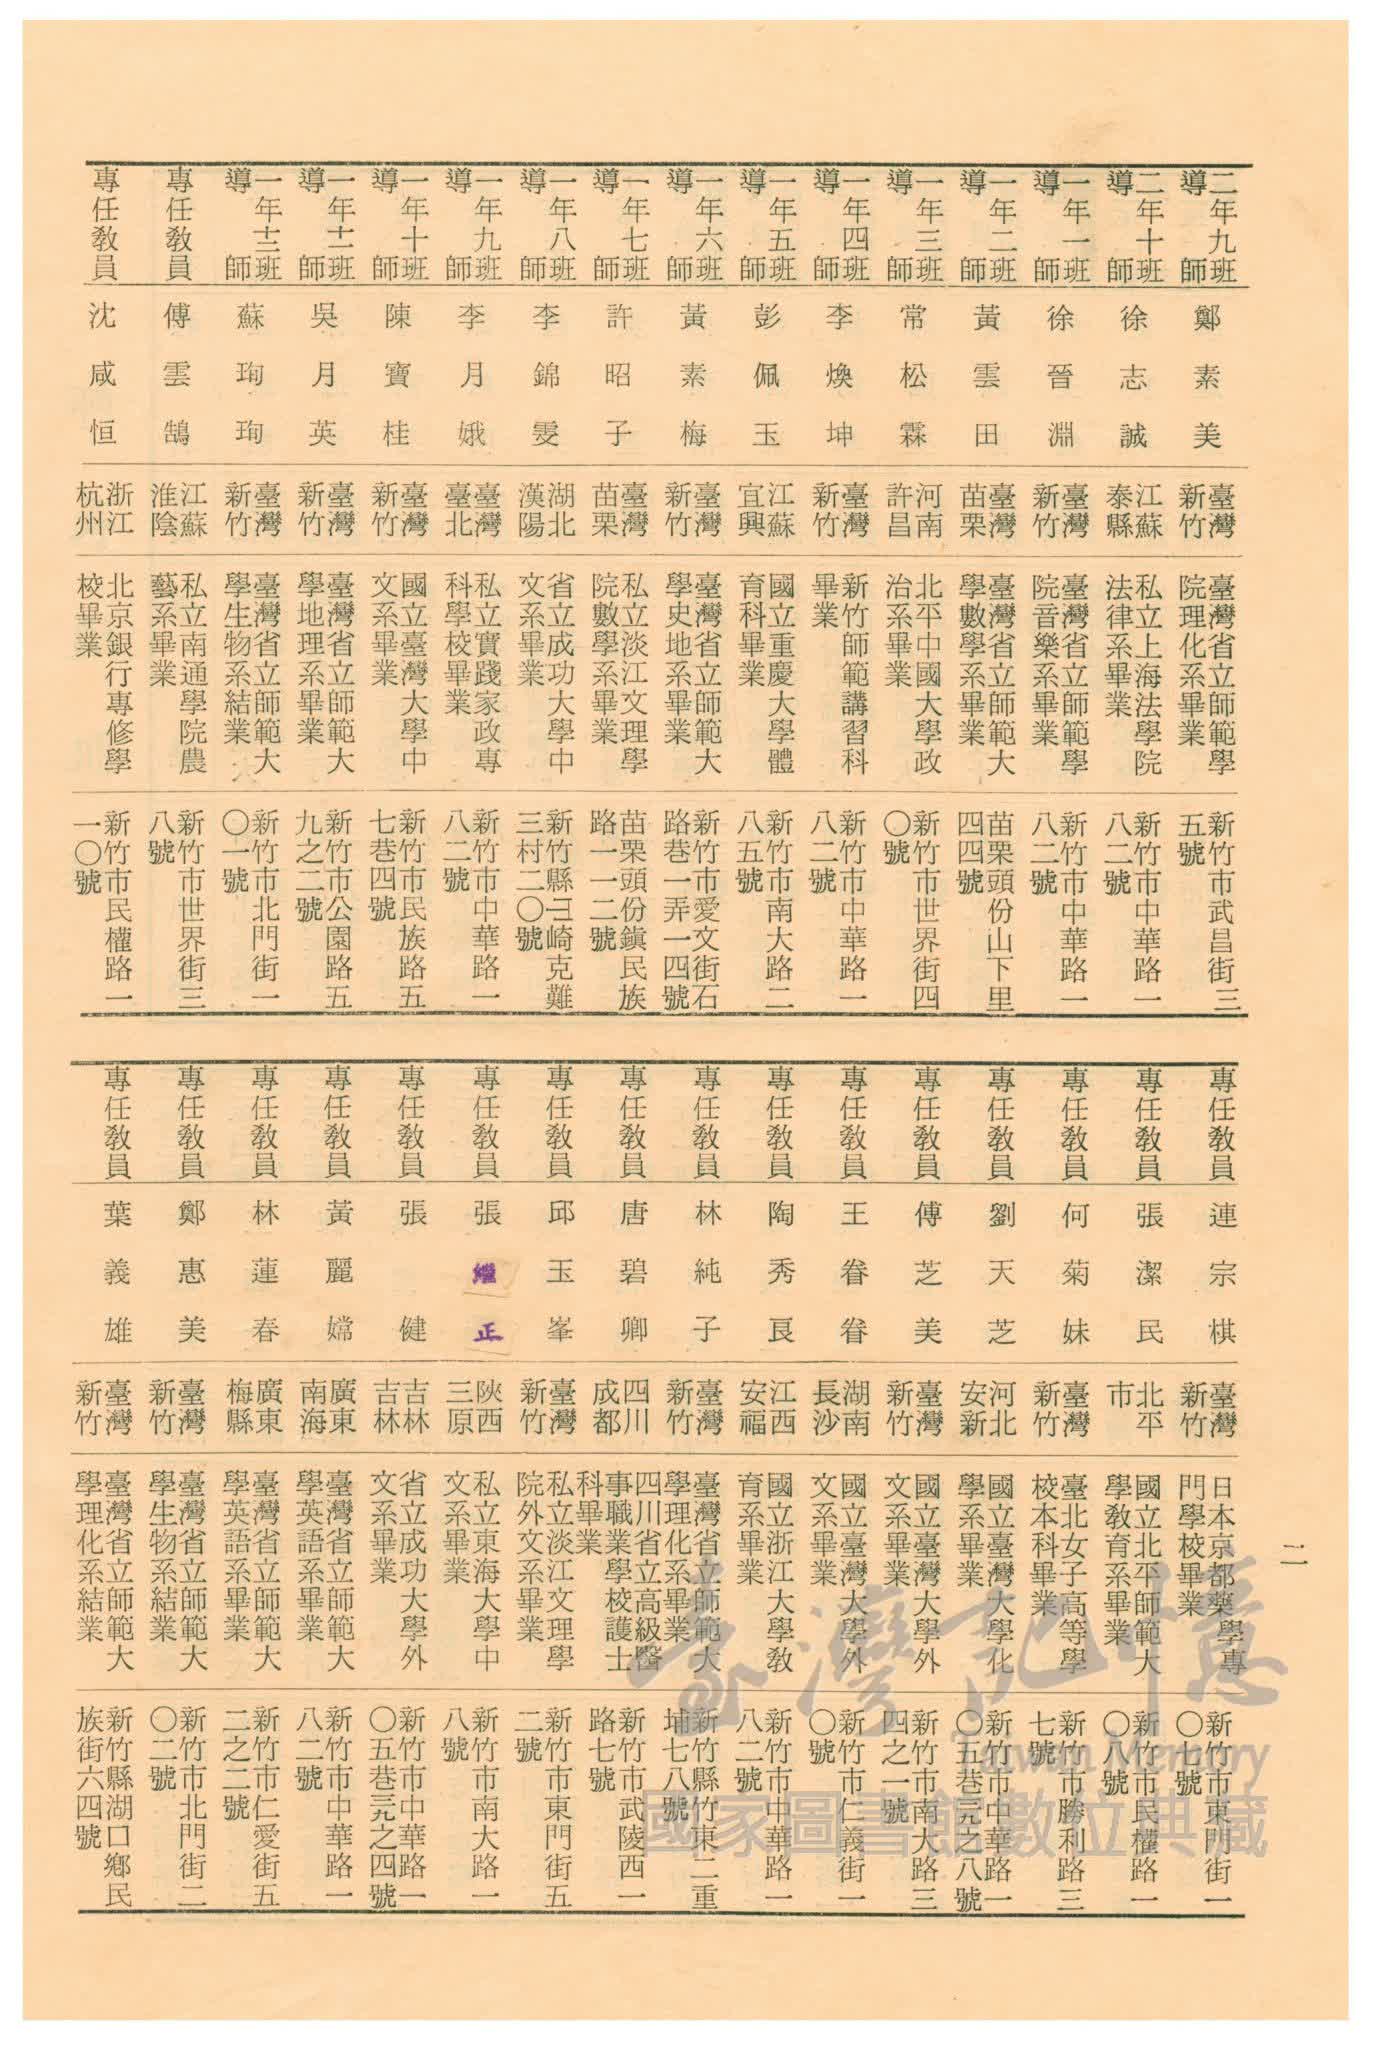 二年九班導師 鄭素美 臺灣新竹 臺灣省立師範學院理化系畢業 新竹市武昌街三五號
二年十班導師 徐志誠 江蘇泰縣 私立上海法學院法律系畢業 新竹市中華路一八二號
一年一班導師 徐晉淵 臺灣新竹 臺灣省立師範學院音樂系畢業 新竹市中華路一八二號
一年二班導師 黃雲田 臺灣苗栗 臺灣省立師範大學數學系畢業 苗栗頭份山下里四四號
一年三班導師 常松霖 河南許昌 北平中國大學政治系畢業 新竹市世界街四〇號
一年四班導師 李煥坤 臺灣新竹 新竹師範講習科畢業 新竹市中華路一八二號
一年五班導師 彭佩玉 江蘇宜興 國立重慶大學體育科畢業 新竹市南大路二八五號
一年六班導師 黃素梅 臺灣新竹 臺灣省立師範大學史地系畢業 新竹市愛文街石路巷一弄一四號
一年七班導師 許昭子 臺灣苗栗 私立淡江文理學院數學系畢業 苗栗頭份鎮民族路一一二號
一年八班導師 李錦雯 湖北漢陽 省立成功大學中文系畢業 新竹縣山崎克難三村二〇號
一年九班導師 李月娥 臺灣臺北 私立實踐家政專科學校畢業 新竹市中華路一八二號
一年十班導師 陳寶桂 臺灣新竹 國立臺灣大學中文系畢業 新竹市民族路五七巷四號
一年十二班導師 吳月英 臺灣新竹 臺灣省立師範大學地理系畢業 新竹市公園路五九之二號
一年十三班導師 蘇珣珣 臺灣新竹 臺灣省立師範大學生物系結業 新竹市北門街一〇一號
專任教員 傅雲鵠 江蘇淮陰 私立南通學院農藝系畢業 新竹市世界街三八號
專任教員 沈咸恒 浙江杭州 北京銀行專修學校畢業 新竹市民權路一一〇號
專任教員 連宗棋 臺灣新竹 日本京都藥學專門學校畢業 新竹市東門街一〇七號
專任教員 張潔民 北平市 國立北平師範大學教育系畢業 新竹市民權路一〇八號
專任教員 何菊妹 臺灣新竹 臺北女子高等學校本科畢業 新竹市勝利路三七號
專任教員 劉天芝 河北安新 國立臺灣大學化學系畢業 新竹市中華路一〇五巷三元之八號
專任教員 傅芝美 臺灣新竹 國立臺灣大學外文系畢業 新竹市南大路三四之一號
專任教員 王眷眷 湖南長沙 國立臺灣大學外文系畢業 新竹市仁義街一〇號
專任教員 陶秀良 江西安福 國立浙江大學教育系畢業 新竹市中華路一八二號
專任教員 林純子 臺灣新竹 臺灣省立師範大學理化系畢業 新竹縣竹東二重埔七八號
專任教員 唐碧卿 四川成都 四川省立高級醫事職業學校護士科畢業 新竹市武陵西一路七號
專任教員 邱玉峯 臺灣新竹 私立淡江文理學院外文系畢業 新竹市東門街五二號
專任教員 張繼正 陝西三原 私立東海大學中文系畢業 新竹市南大路一八號
專任教員 張健 吉林吉林 省立成功大學外文系畢業 新竹市中華路一〇五巷三元之四號
專任教員 黃麗嫦 廣東南海 臺灣省立師範大學英語系畢業 新竹市中華路一八二號
專任教員 林蓮春 廣東梅縣 臺灣省立師範大學英語系畢業 新竹市仁愛街五二之二號
專任教員 鄭惠美 臺灣新竹 臺灣省立師範大學生物系結業 新竹市北門街二〇二號
專任教員 葉義雄 臺灣新竹 臺灣省立師範大學理化系結業 新竹縣湖口鄉民族街六四號
二
臺灣記憶
Taiwan Memory
國家圖書館數位典藏